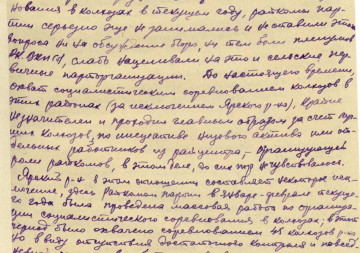 нования в колхозах в текущем году, райкомы пар-
тии серьезно еще не занимались и не ставили эти
вопросы ни на обсуждение бюро, ни тем более пленумов
РК ВКП(б), слабо нацеливали на это и сельские пер-
вичные парторганизации. До настоящего времени
охват социалистическим соревнованием колхозов в
этих районах (за исключением Ярского р-на), крайне
незначителен и проходил главным образом за счет луч-
ших колхозов, по инициативе низового актива или от-
дельных работников из райцентра — организующей
роли райкомов, в этом деле, до сих пор не чувствовалось.
Ярский р-н в этом отношении составляет некоторое иск-
лючение, здесь райкомом партии в январе-феврале текуще-
го года была проведена массовая работа по организа-
ции социалистического соревнования в колхозах, в этот
период было охвачено соревнованием 48 колхозов р-на
но в виду отсутствия достаточного контроля и повсед-